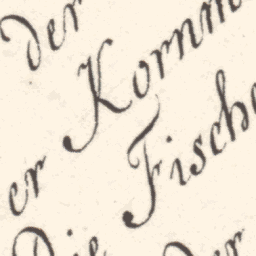 der
er Kornm
Die Fische
der